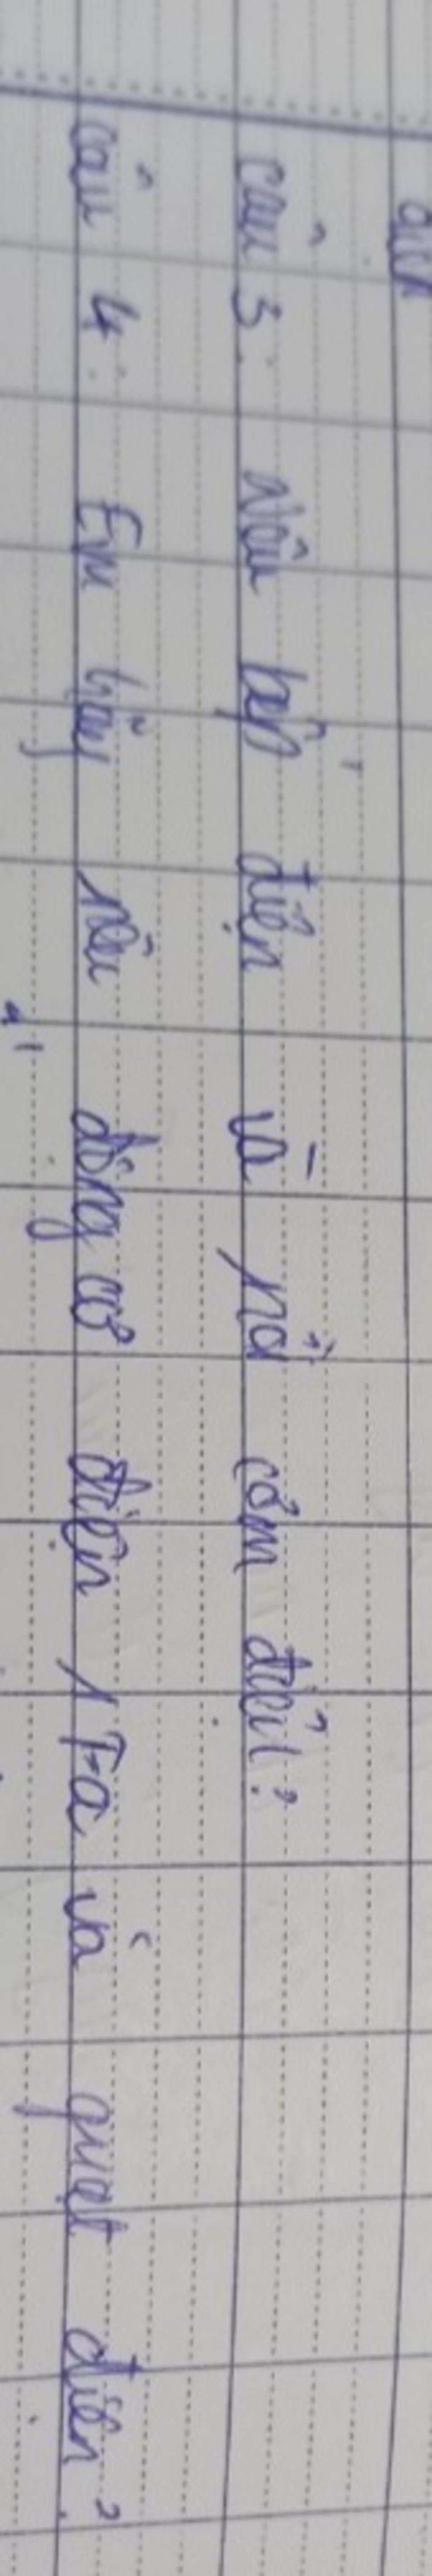 câu 3: Nêu bếp điện và nồi cơm điện?
câu 4: Em hãy nêu động cơ điện 1 Fa và quạt điện?